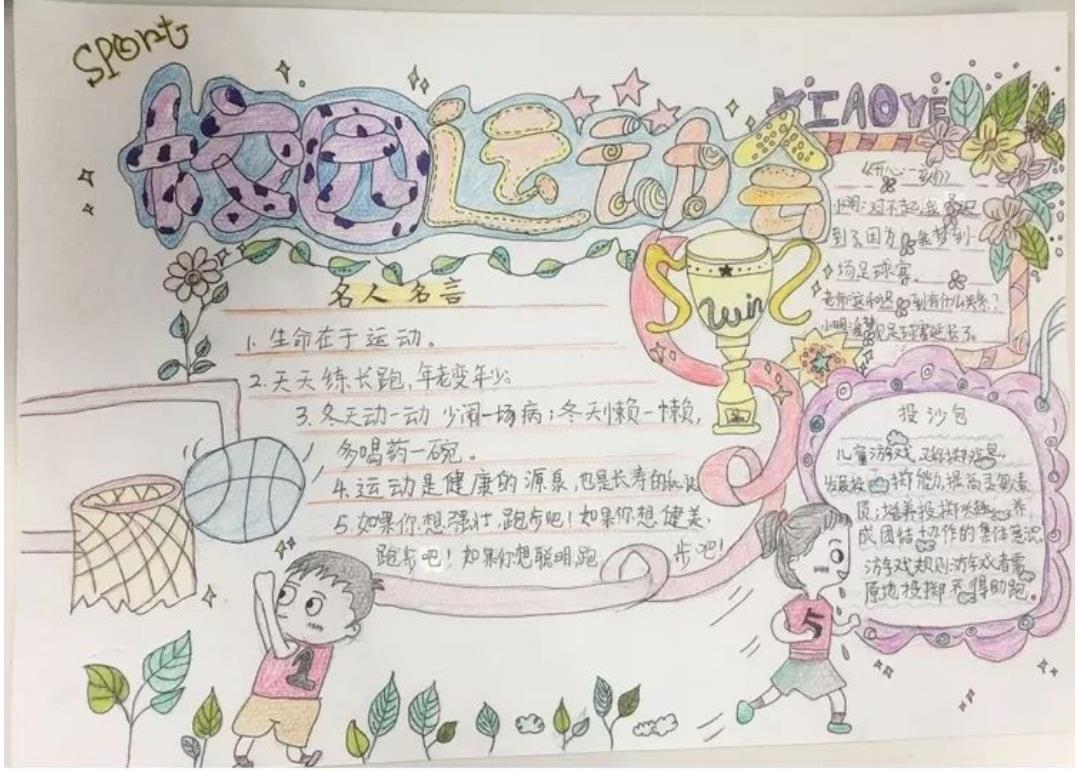 SPOrt
校园运动会
XIAOYE
名人名言
1. 生命在于运动。
2. 天天练长跑,年老变年少。
3. 冬天动一动 少闹一场病;冬天懒一懒,
多喝药一碗。
4. 运动是健康的源泉,也是长寿的
5. 如果你想强壮,跑步吧!如果你想健美,
跑步吧!如果你想聪明,跑 步吧!
Win
《开心一刻》
小明:对不起,我 迟
到了,因为 我梦到一
场足球赛。
老师: 和迟 到有什么关系?
小明: 足球赛延长了。
投沙包
儿童游戏,又称掷沙包。
发展投 掷能力,提高灵敏素
质;培养投掷兴趣, 养
成团结 协作的集体意识。
游戏规则:游戏者需
原地投掷 不得助跑。
1
5